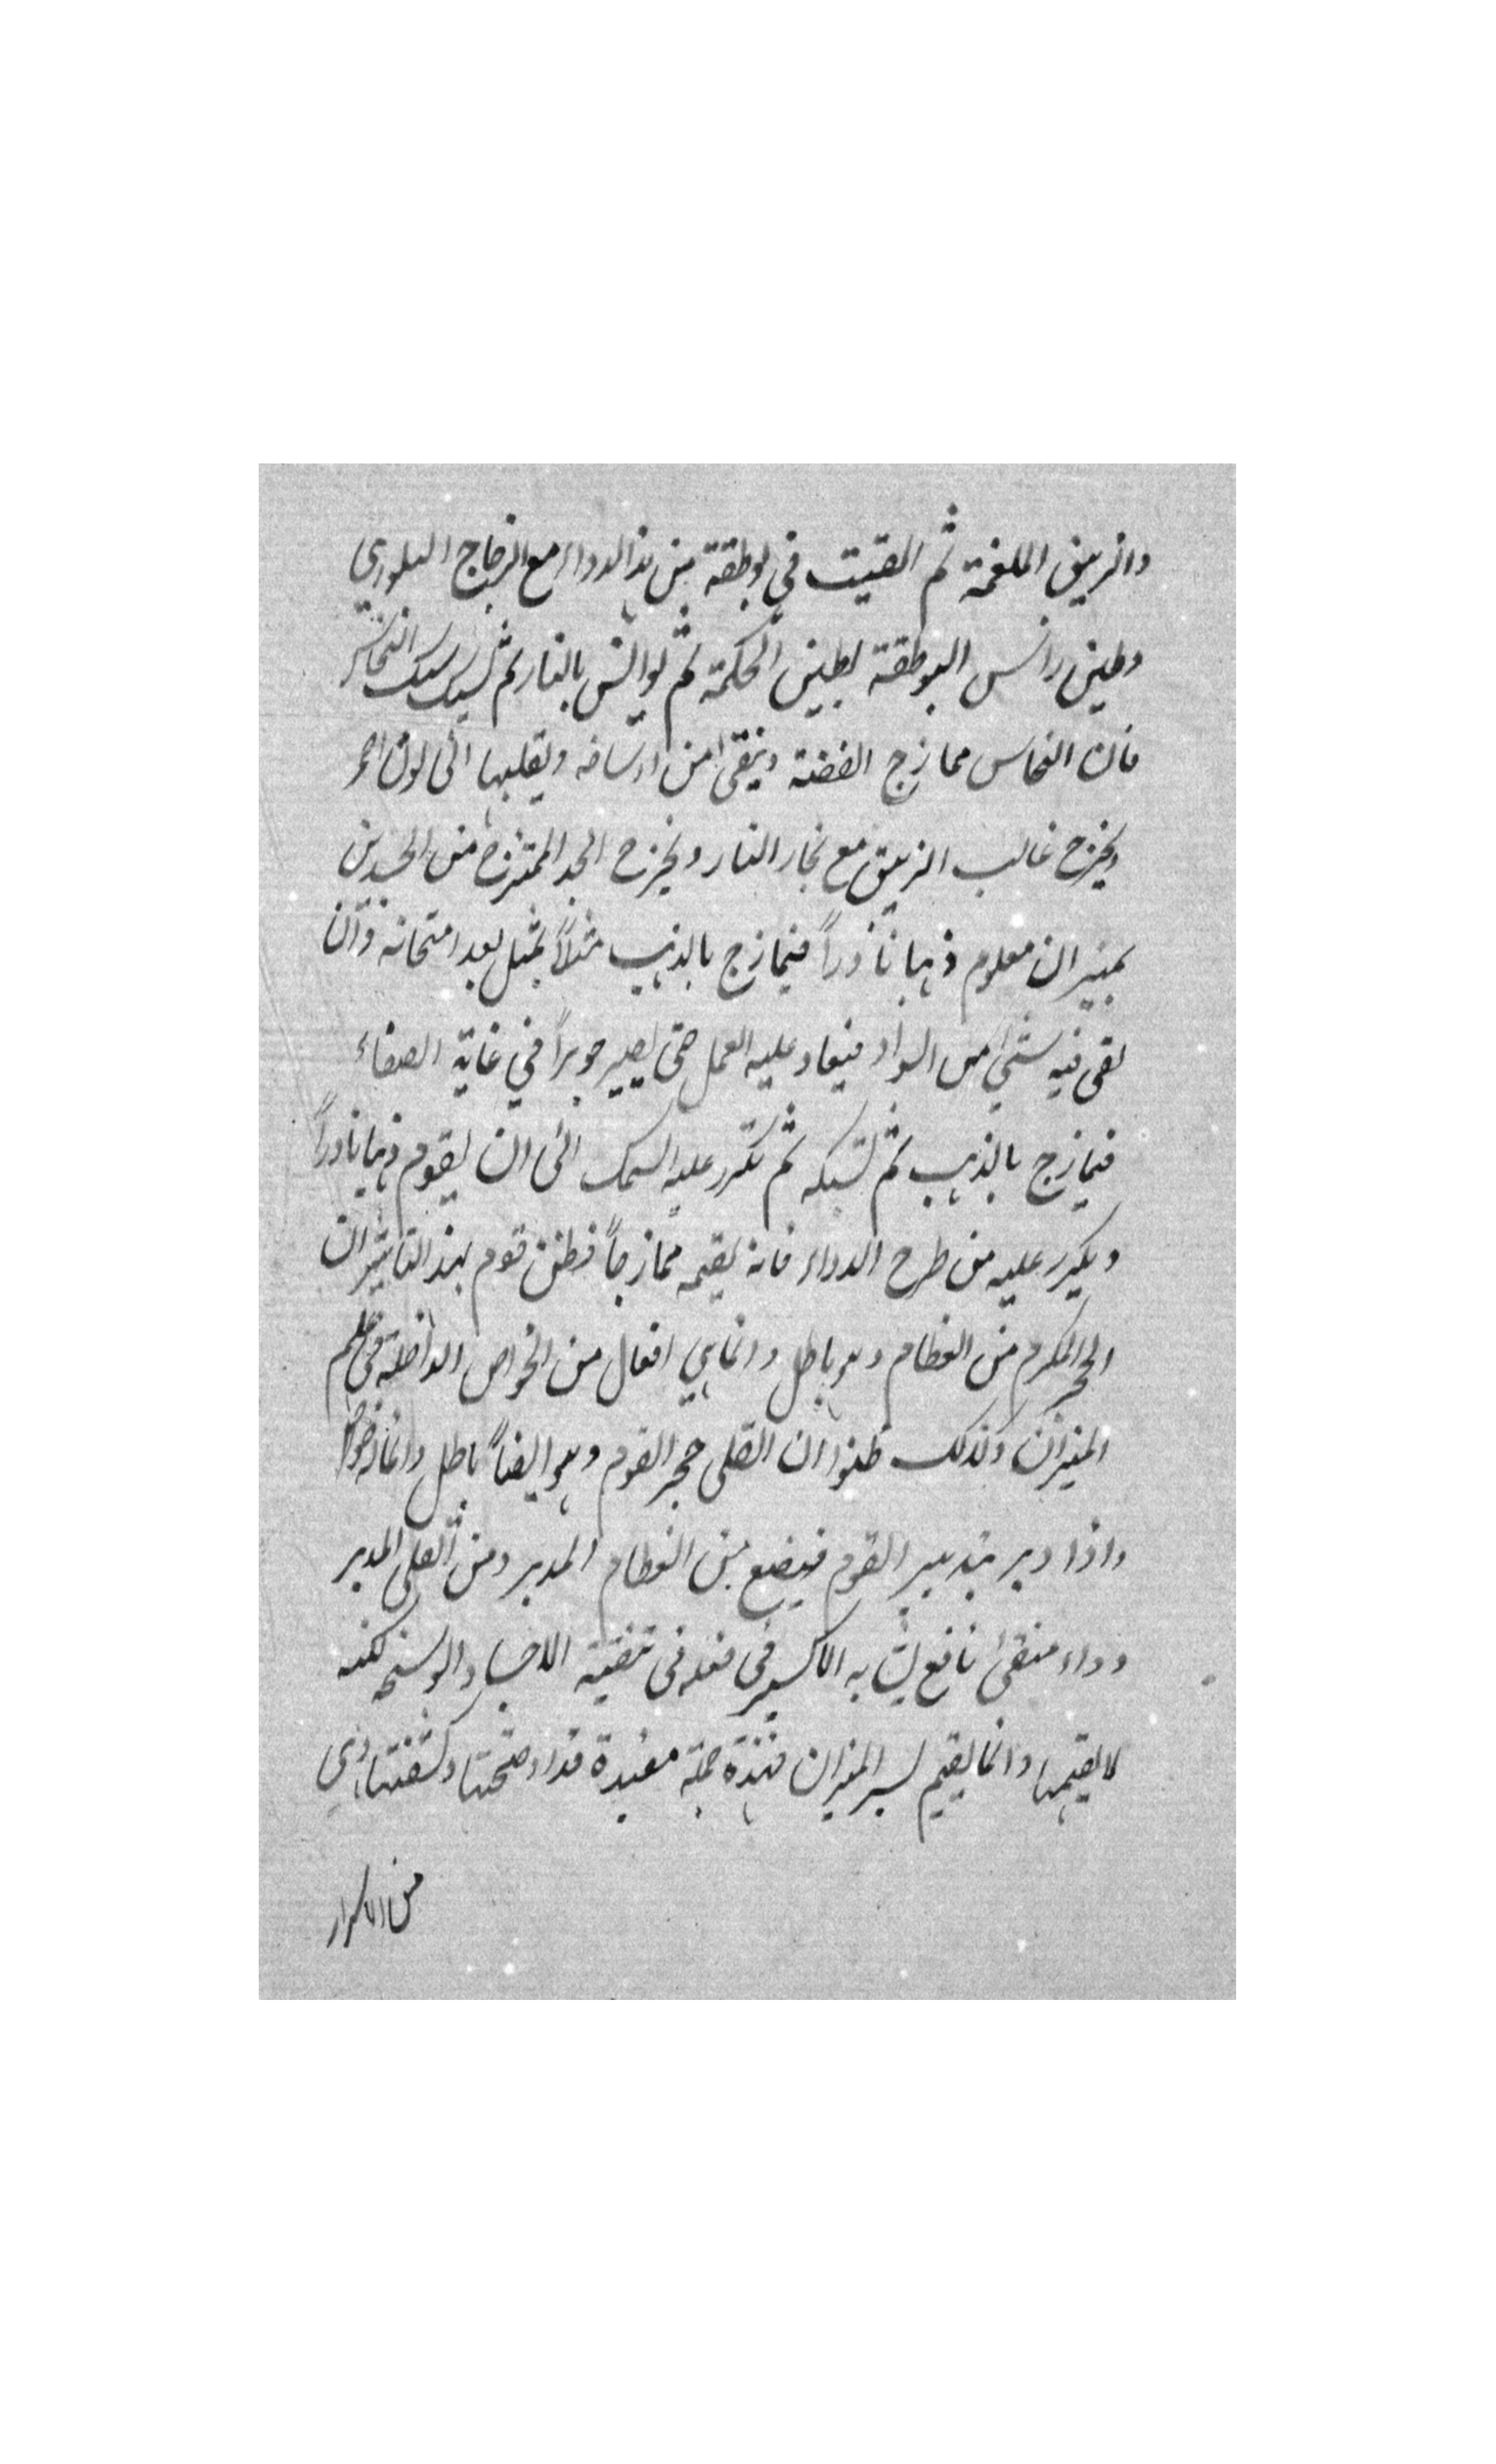 والزيبق الملغمة ثم القيت في بوطقة من هذا الدواء مع الزجاج البلوري
وطين رأس البوطقة بطين الحكمة ثم يوانس بالنار ثم يسبك سبك النحاس
فان النحاس يمازج الفضة وينقى من اوساخه ويقلبها الى لون احمر
ويخرج غالب الزيبق مع بخار النار ويخرج الجسد الممتزج من الجسدين
بميزان معلوم ذهبا نادراً فيمازج بالذهب مثلاً بمثل بعد امتحانه وان
بقى فيه شيء من السواد فيعاد عليه العمل حتى يصير جوهراً في غاية الصفاء
فيمازج بالذهب ثم تسبكه ثم تكرر عليه السبك الى ان يقوم ذهبا نادراً
ويكرر عليه من طرح الدواء فانه يقيمه ممازجاً فظن قوم بهذا التاثير ان
الحجر المكرم من العظام وهو باطل وانما هي افعال من الخواص الداخلة في علم
الميزان وكذلك ظنوا ان القلى حجر القوم وهو ايضاً باطل وانما هو
واذا دبر بتدبير القوم فيضع من العظام المدبر ومن القلى المدبر
دواء منقى نافع يشابه الاكسير في فعله في تنقية الاجساد الوسخة لكنه
لا يقيمها وانما يقيم لسر الميزان فهذه جملة مفيدة قد اوضحتها وكشفتها وهي
من الاسرار